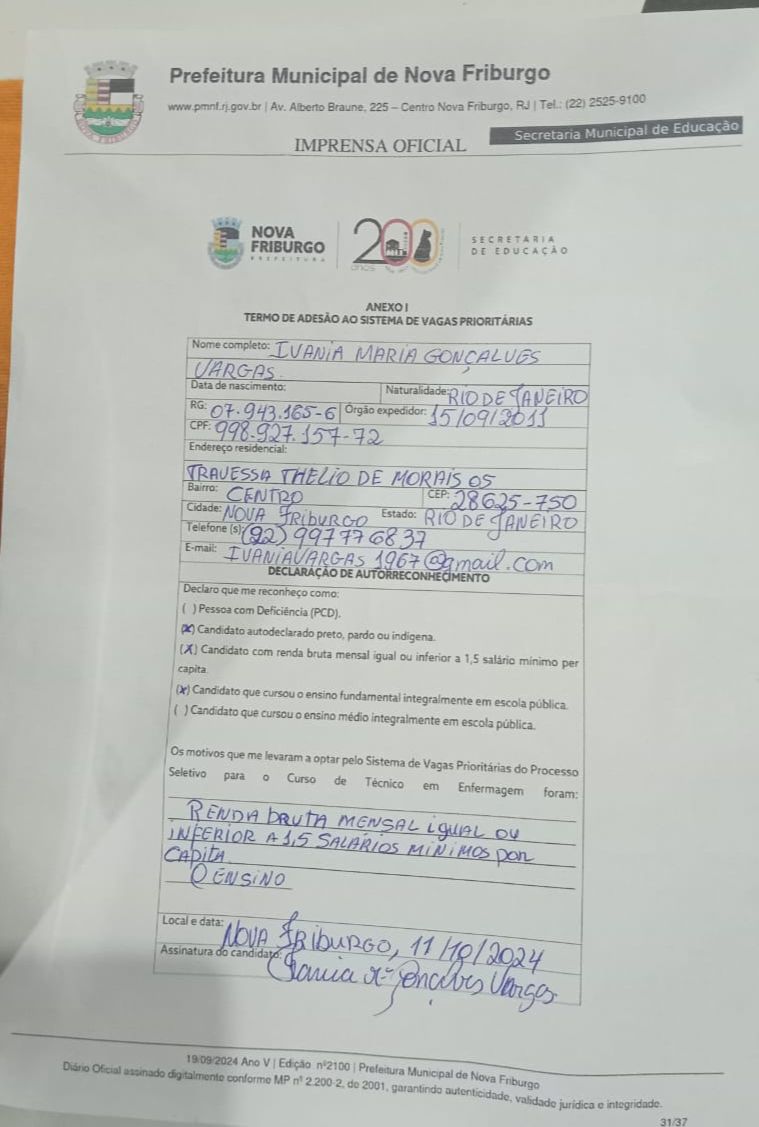 Prefeitura Municipal de Nova Friburgo
www.pmnf.rj.gov.br | Av. Alberto Braune, 225 – Centro Nova Friburgo, RJ | Tel.: (22) 2525-9100
Secretaria Municipal de Educação
IMPRENSA OFICIAL
NOVA FRIBURGO
NOVA
FRIBURGO
PREFEITURA
200
anos
SECRETARIA
DE EDUCAÇÃO
ANEXO I
TERMO DE ADESÃO AO SISTEMA DE VAGAS PRIORITÁRIAS
Nome completo: IVANIA MARIA GONÇALVES
VARGAS
Data de nascimento: Naturalidade: RIO DE JANEIRO
RG: 07.943.165-6 Órgão expedidor: 15/09/2011
CPF: 998.927.157-72
Endereço residencial:
TRAVESSA THELIO DE MORAIS 05
Bairro: CENTRO CEP: 28625-750
Cidade: NOVA FRIBURGO Estado: RIO DE JANEIRO
Telefone (s): (22) 997776837
E-mail: IVANIAVARGAS1967@gmail.com
DECLARAÇÃO DE AUTORRECONHECIMENTO
Declaro que me reconheço como:
( ) Pessoa com Deficiência (PCD).
(X) Candidato autodeclarado preto, pardo ou indígena.
(X) Candidato com renda bruta mensal igual ou inferior a 1,5 salário mínimo per
capita.
(X) Candidato que cursou o ensino fundamental integralmente em escola pública.
( ) Candidato que cursou o ensino médio integralmente em escola pública.
Os motivos que me levaram a optar pelo Sistema de Vagas Prioritárias do Processo
Seletivo para o Curso de Técnico em Enfermagem foram:
RENDA BRUTA MENSAL IGUAL OU
INFERIOR A 1,5 SALÁRIOS MÍNIMOS POR
CAPITA
O ENSINO
Local e data: NOVA FRIBURGO, 11/10/2024
Assinatura do candidato: Ivania Mª Gonçalves Vargas
19/09/2024 Ano V | Edição nº2100 | Prefeitura Municipal de Nova Friburgo
Diário Oficial assinado digitalmente conforme MP nº 2.200-2, de 2001, garantindo autenticidade, validade jurídica e integridade.
31/37